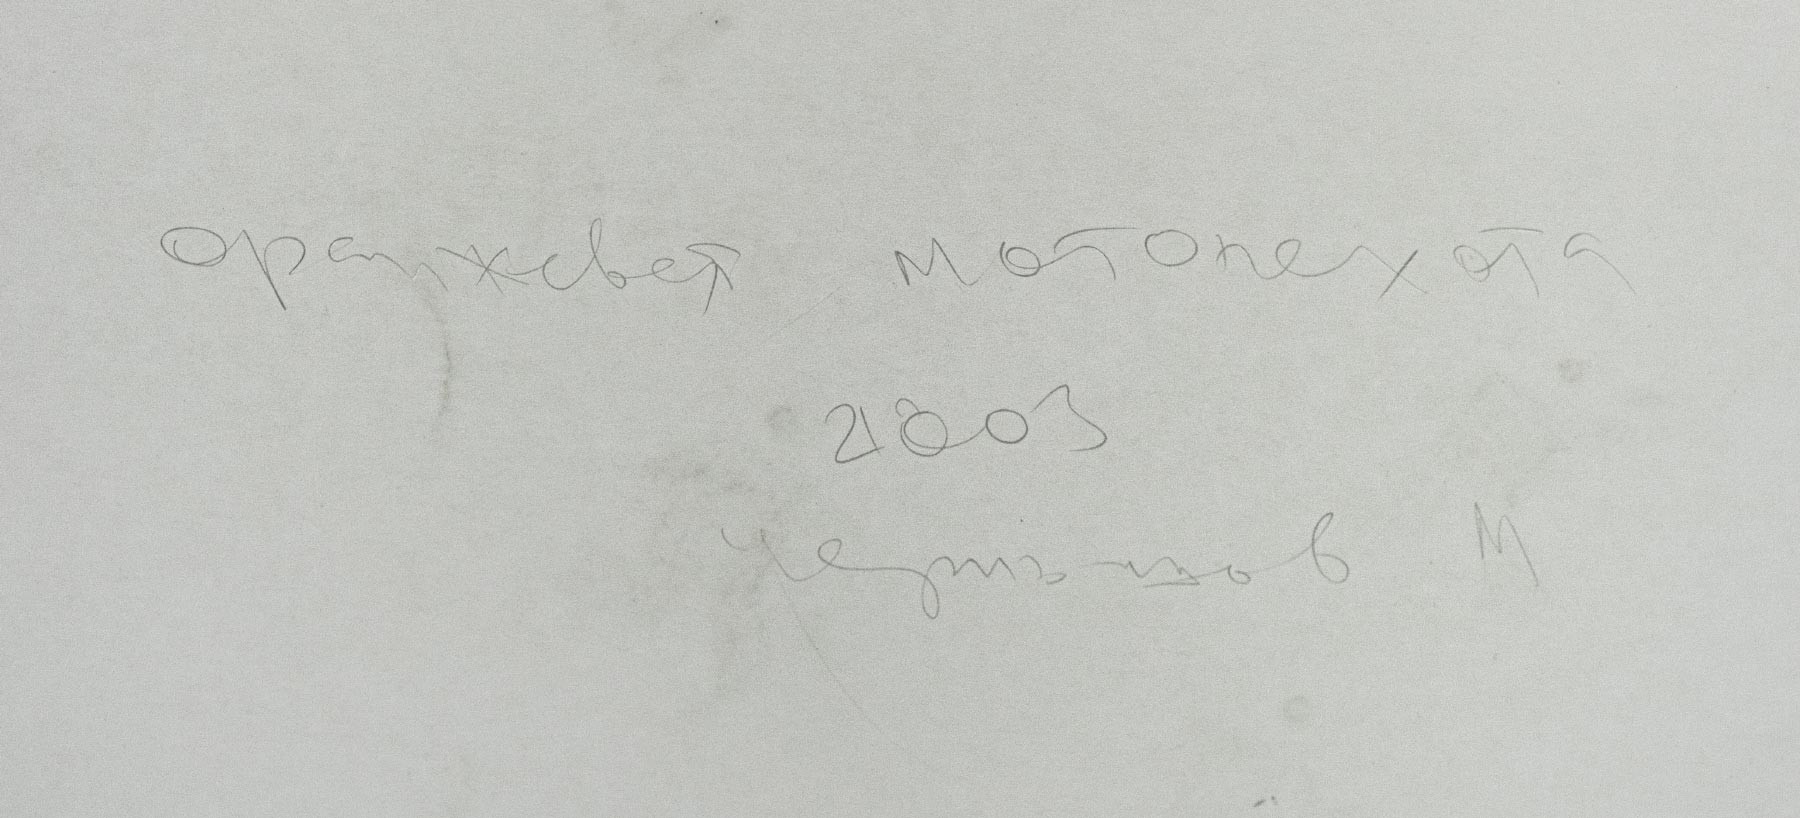 оранжевая мотопехота
2003
Чернышов М